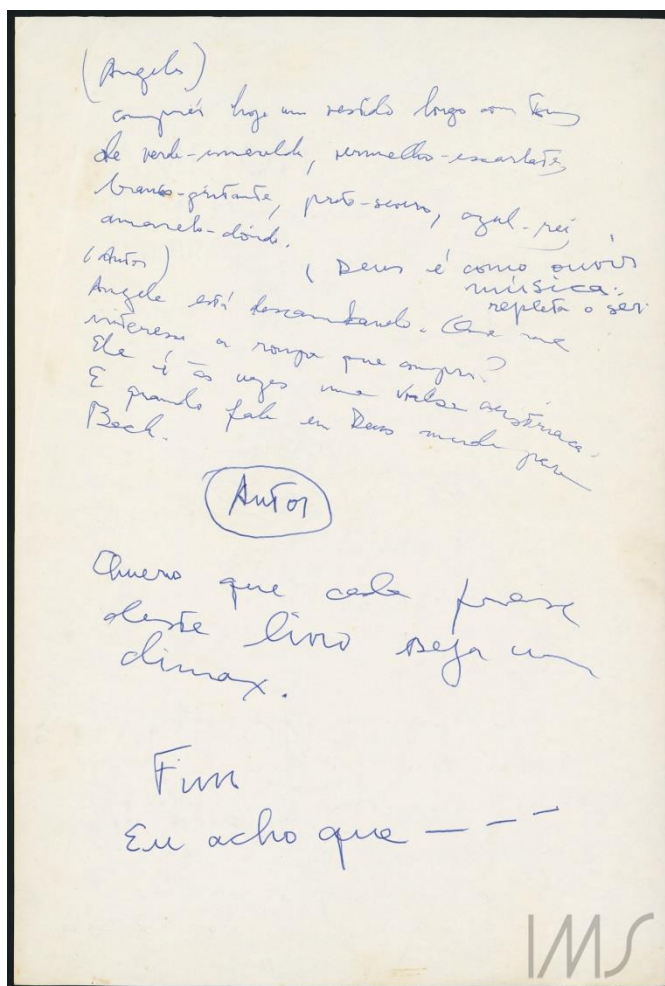 (Angela)
comprei hoje um vestido longo com tons
de verde-esmeralda, vermelho-escarlate,
branco-gritante, preto-severo, azul-rei
amarelo-dóido.
(Autor)
( Deus é como ouvir
música:
repleta o ser.
Angela está descambando. Que me
interessa a roupa que compra?
Ela é às vezes uma valsa austríaca.
E quando fala em Deus muda para
Bach.
Autor
Quero que cada frase
deste livro seja um
climax.
Fim
Eu acho que — — —
IMS